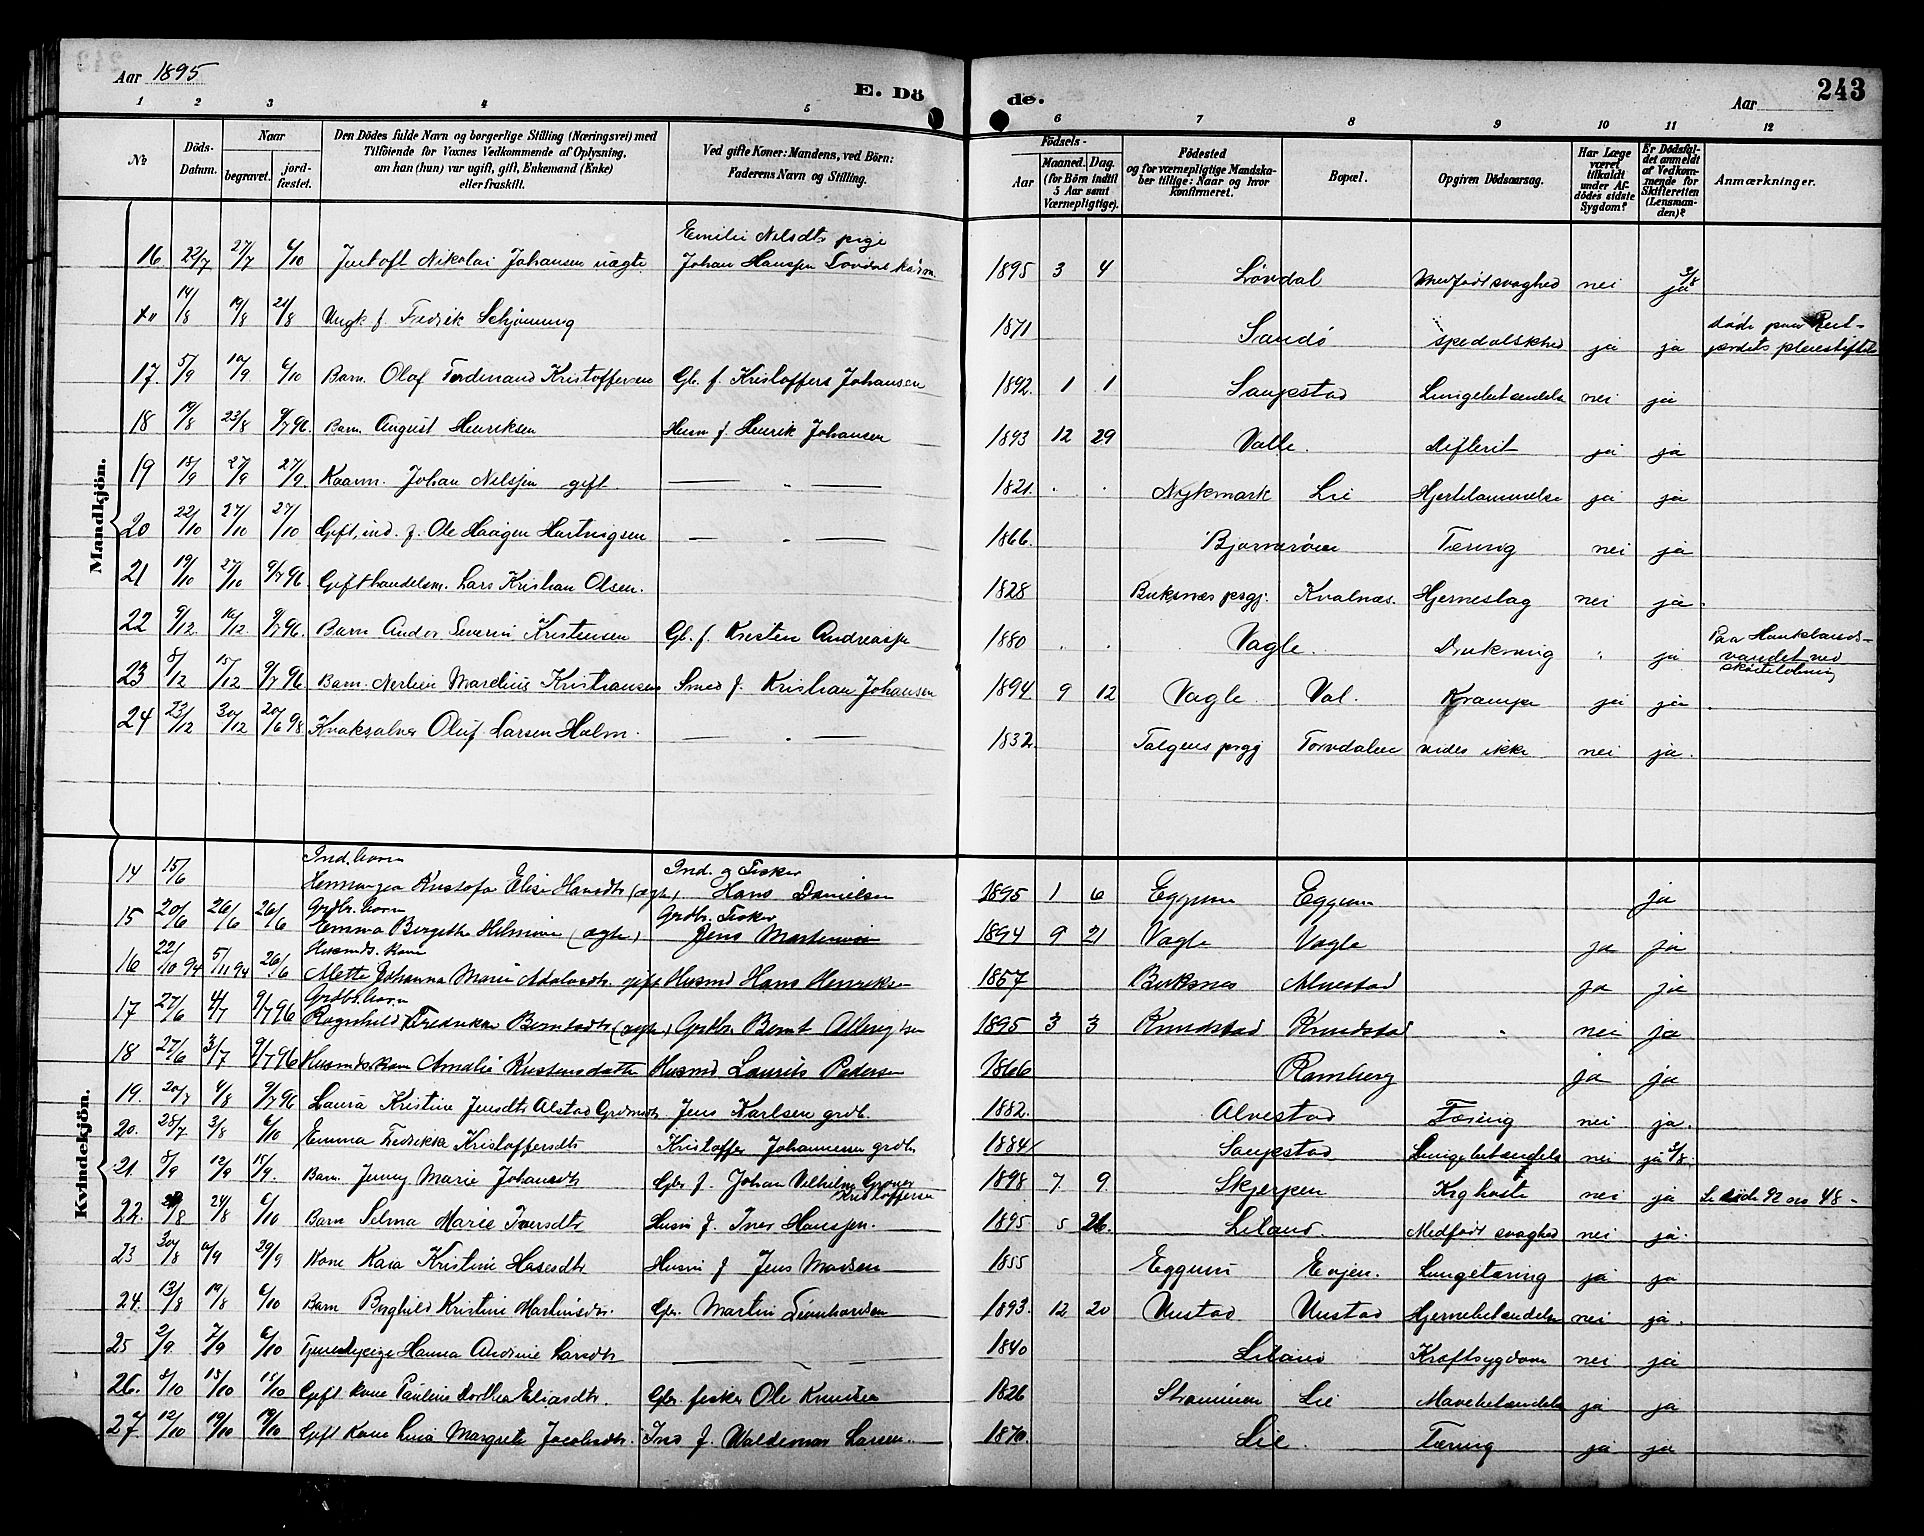 Aar 1895
E. Dö
de.
Aar
243
1 2 3 4 5 6 7 8 9 10 11 12
№
Döds-Datum.
Naar
begravet.
jord-fæstet.
Den Dödes fulde Navn og borgerlige Stilling (Næringsvei) med
Tilföiende for Voxnes Vedkommende af Oplysning,
om han (hun) var ugift, gift, Enkemand (Enke)
eller fraskilt.
Ved gifte Koner: Mandens, ved Börn:
Faderens Navn og Stilling.
Födsels-
Aar
Maaned. Dag.
(for Börn indtil
5 Aar samt
Værnepligtige).
Födested
og for værnepligtige Mandska-
ber tillige: Naar og hvor
konfirmeret.
Bopæl.
Opgiven Dödsaarsag.
Har Læge
været
tilkaldt
under Af-
dödes sidste
Sygdom?
Er Dödsfal-
det anmeldt
af Vedkom-
mende for
Skifteretten
(Lensman-
den)?
Anmærkninger.
Mandkjön.
16 22/7 27/7 6/10 Nikolai Johansen uægte Emilie Nilsdtr pige Johan Hanssen 1895 3 4 Lövdal Medfödt svaghed nei 2/8 ja
14/8 19/8 21/8 Ungk f Fredrik Schjönning 1871 Sandö spedalskhed ja ja döde paa Reit-
jærdets pleiestiftelse
17. 5/9 10/9 6/10 Barn Olaf Ferdinand Kristoffersen Gb. f. Kristoffers Johansen 1892 1 1 Saupstad Lungebetændelse nei ja
18 19/8 23/8 9/7 96. Barn August Henriksen Husm f Henrik Johansen 1893 12 29 Valle. difterit ja ja
19 18/9 27/9 27/9 Kaarm. Johan Nilssen gift — " — 1821. Nykmark Lie Hjertelammelse ja ja
20 22/10 27/10 27/10 Gift, ind. f. Ole Haagen Hartvigsen — " — 1866. Tæring nei ja
21 19/10 27/10 9/7 96. Gift handelsm. Lars Kristian Olsen. 1828 Buksnæs prgj. Kvalnæs. Hjerneslag nei ja.
22 9/12. 16/12 9/7 96. Barn Andor Severin Kristensen Gb. f. Kristen Andreass 1880 Vagle. Drukning " ja Paa Hauklands-
vandet ved
sköiteløbning
23 8/12 15/12 9/7 96 Barn Marelius Kristiansen Smed f. Kristian Johansen 1894 9 12 Vagle. Val. Krampe ja ja
24 23/12 30/12 20/6 98 Kvaksalver Oluf Larsen Holm. — " — 1832. Tolgens prgj Torvdalen vides ikke nei ja.
Kvindekjön.
14 15/6 Ind. barn Kristofa Elise Hansdtr (ægte) Ind. og Fisker Hans Danielsen 1895 1 6 Eggum Eggum ja
15 20/6 26/6 26/6 Grdbr. barn Emma Bergithe Helmine (ægte) Grdbr. Fisker Jens 1894 9 21 Vagle Vagle ja ja
16 22/10 94 5/11 94 26/6 Husmds. kone Mette Johanna Marie gift Husmd Hans Henriksen 1857 Buksnes Alvestad ja ja
17 27/6 4/7 9/7 96 Grdbr. barn Ragnhild Fredrikke (ægte) Grdbr Bernt 1895 3 3 Knudstad Knudstad " nei ja
18 27/6 3/7 9/7 96 Husmdskone Amalie Kristensdatter Husmd Laurits Pedersen 1866 Ramberg ja ja
19. 20/7 4/8 9/7 96 Laura Kristine Jensdtr Alstad Jens Karlsen grdb. 1882. Alvestad Tæring nei ja.
20. 25/7 3/8 6/10 Emma Fedrikka Kristoffersdtr Kristoffer Johannesen grdb 1884 Saupstad Lungebetændelse nei ja 2/8.
21. 8/9 12/9 15/9. Barn Jenny Marie Johansdtr Gbr f. Johan Vilhelm Kristoffersen 1898 7 9 Skjerpen Kighoste nei ja Se döde 92 no 48 -
22. 24/8 6/10 Barn Selma Marie Iversdtr Husm f. Iver Hanssen. 1895 5 26. Leland. Medfödt svaghed nei ja.
23 30/8 29/9 Kone Kaia Kristine Husm f Jens Madsen 1855 Eggum Evjen. Lungetæring ja ja
24. 13/8 19/8 6/10 Barn Borghild Kristine Martinsdtr. Gbr. Martin 1893. 12 20 Unstad Unstad Hjernebetændelse nei ja.
25 2/9. 7/9 6/10 Tjenestepige Hanna Andrine Larsdtr — 1840 Leland Kræftsygdom nei ja
26. 8/10 15/10 15/10 Gift kone Pauline Dorthea Eliasdtr. Gbr. fisker Ole Knudsen 1826 Lie Mavebetændelse ja ja
27. 12/10 19/10 19/10 Gift kone Lina Margrete Jacobsdtr. Ind f. Waldemar Larsen. 1870. Lie. Tæring ja ja